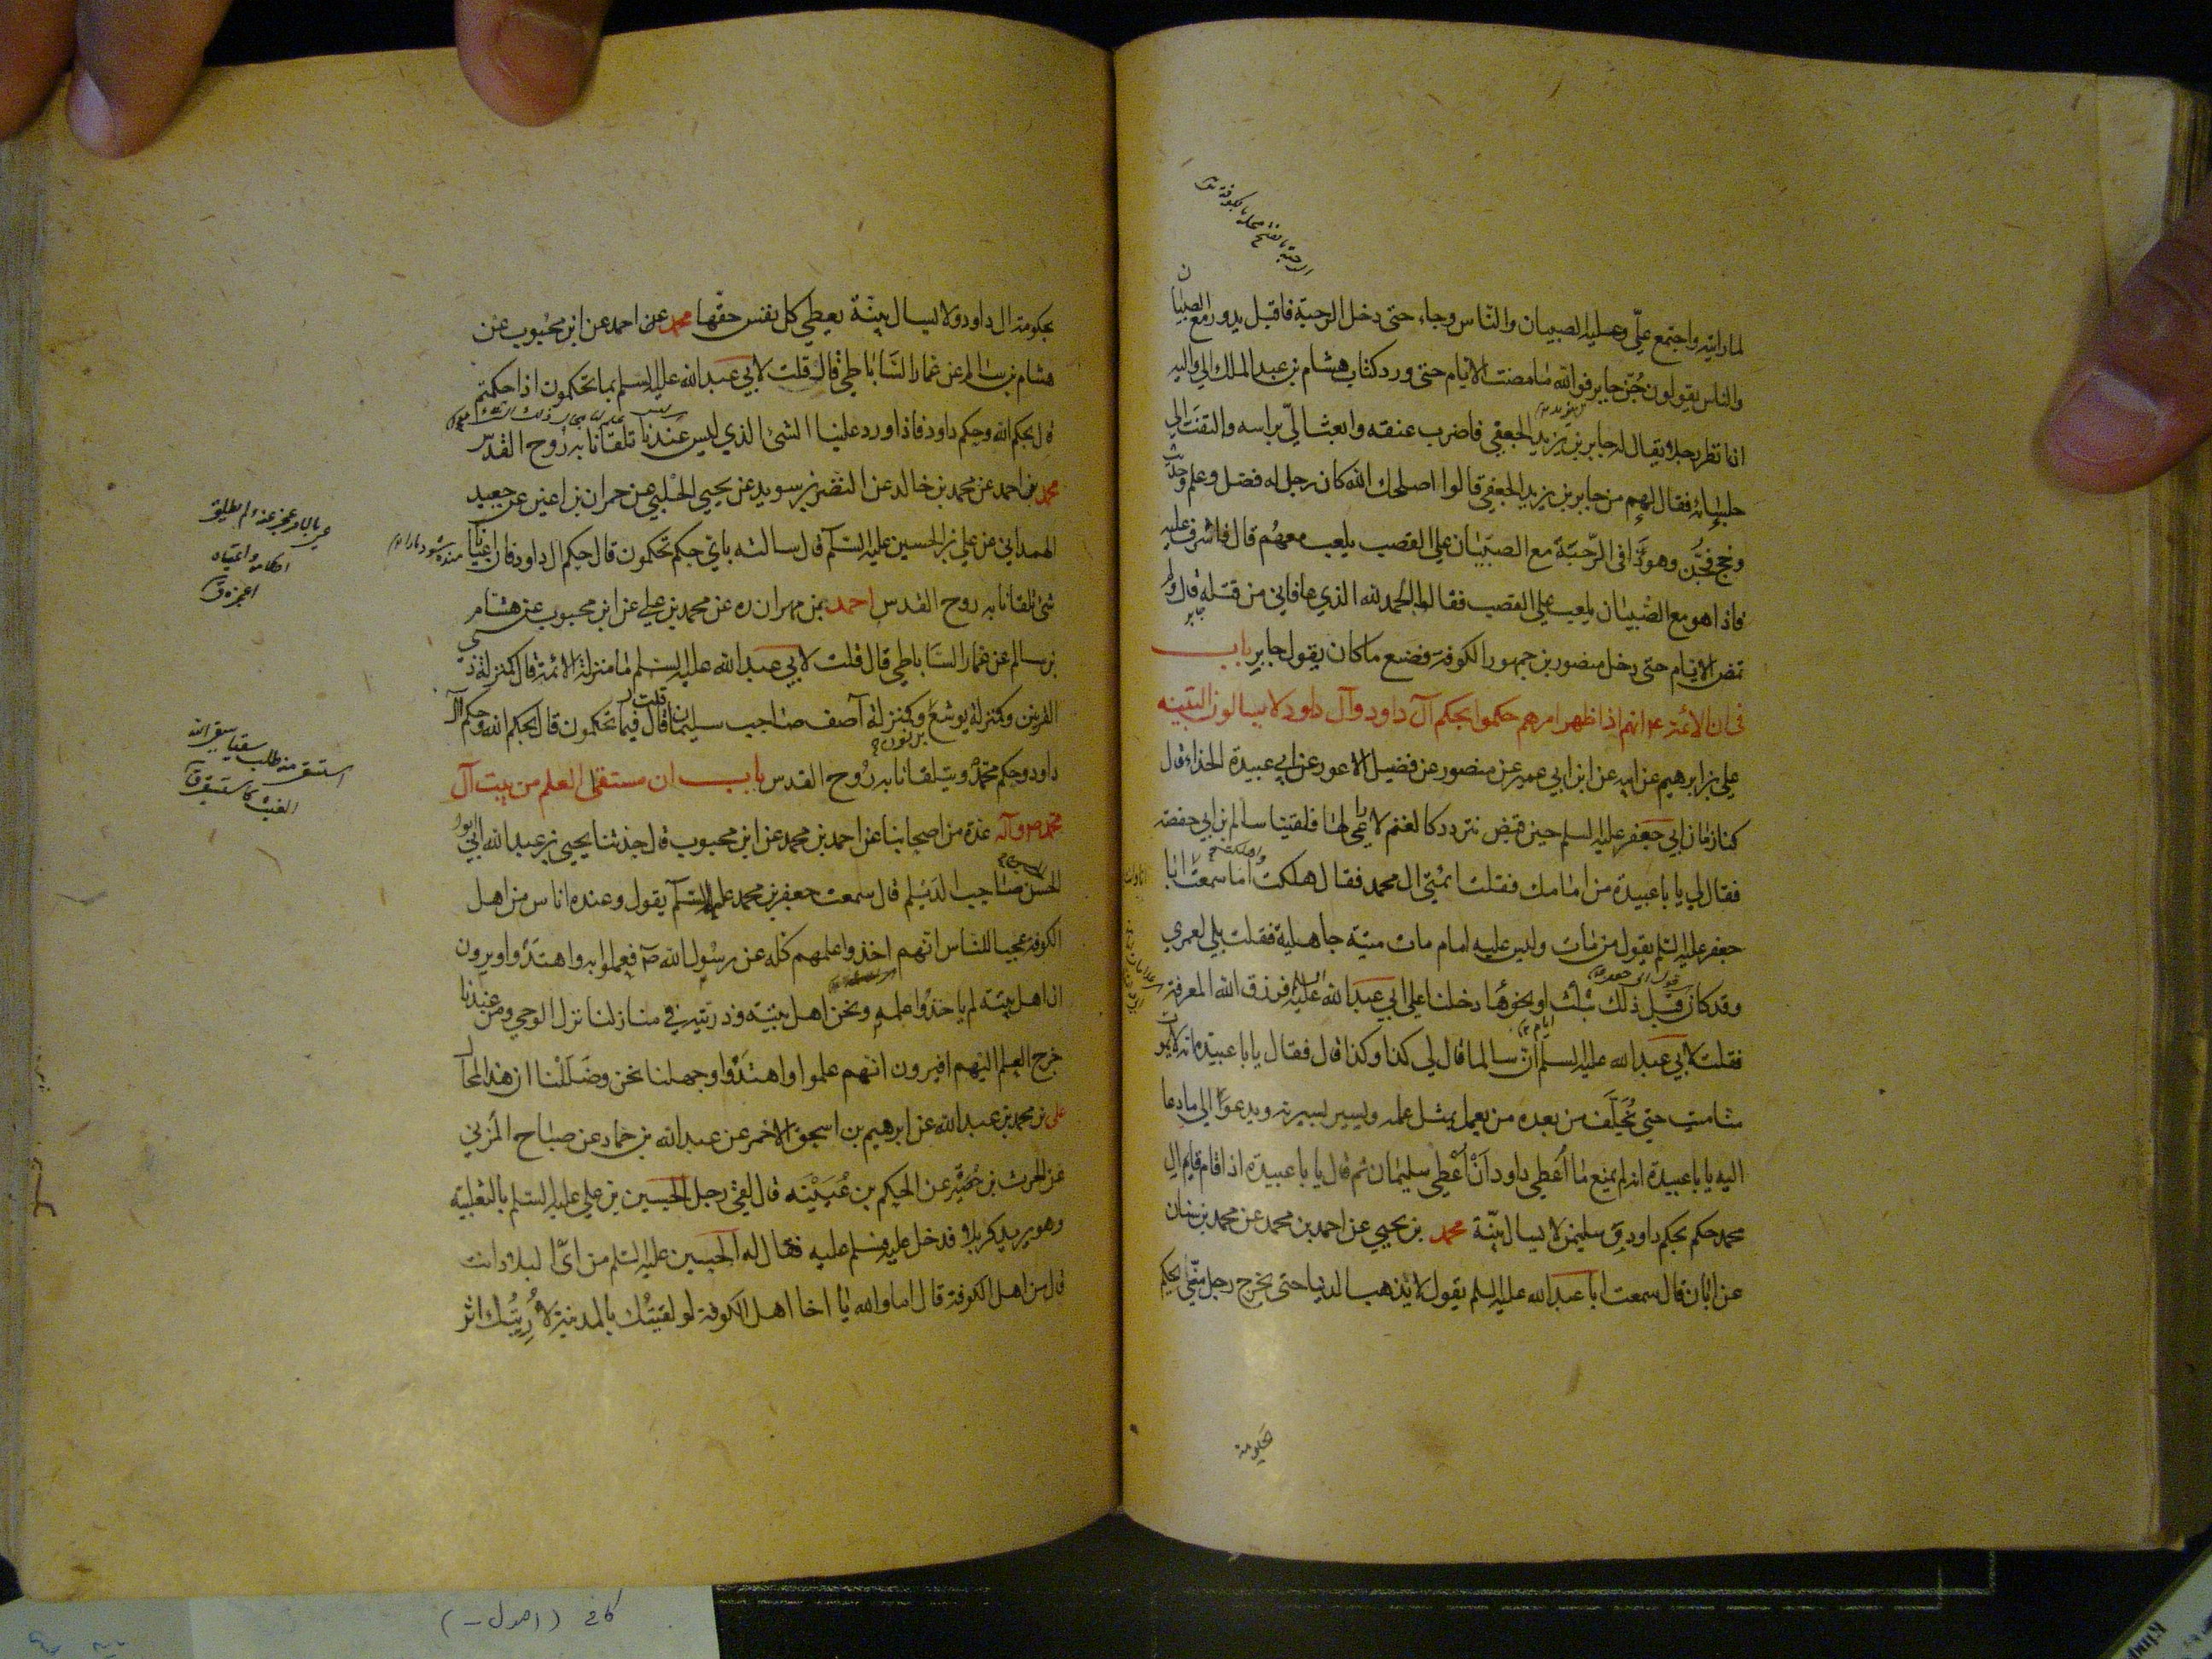 لما رايته واجتمع علي وعليه الصبيان والناس وجاء حتى دخل الرحبة فاقبل يدور مع الصبيان
والناس يقولون جن جابر فوالله ما مضت الايام حتى ورد كتاب هشام بن عبد الملك الى واليه
ان انظر رجلا يقال له جابر بن يزيد الجعفي فاضرب عنقه وابعث الي براسه والتفت الى
جلسائه فقال لهم من جابر بن يزيد الجعفي قالوا اصلحك الله كان رجل له فضل وعلم وحديث
وحج فجن وهو ذا في الرحبة مع الصبيان على القصب يلعب معهم قال فاشرف عليه
فاذا هو مع الصبيان يلعب على القصب فقال الحمد لله الذي عافاني من قتله قال ولم
تمض الايام حتى دخل منصور بن جمهور الكوفة فصنع ما كان يقول جابر باب
في ان الائمة ع انهم اذا ظهر امرهم حكموا بحكم آل داود وآل داود لا يسالون البينه
علي بن ابرهيم عن ابيه عن ابن ابي عمير عن منصور عن فضيل الاعور عن ابي عبيدة الحذاء قال
كنا زمان ابي جعفر عليه السلم حين قبض نتردد كالغنم لا راعي لها فلقينا سالم بن ابي حفصة
فقال لي يا با عبيدة من امامك فقلت ائمتي ال محمد فقال هلكت واهلكت اما سمعت انا وانت ابا
جعفر عليه السلم يقول من مات وليس عليه امام مات ميتة جاهلية فقلت بلى لعمري
وقد كان قبل ذلك بثلث او نحوها دخلنا على ابي عبد الله عليه السلم فرزق الله المعرفة
فقلت لابي عبد الله عليه السلم ان سالما قال لي كذا وكذا قال فقال يا با عبيدة انه لا يموت
منا ميت حتى يخلف من بعده من يعمل بمثل عمله ويسير بسيرته ويدعو الى ما دعا
اليه يا با عبيدة انه لم يمنع ما اعطي داود ان اعطي سليمان ثم قال يا با عبيدة اذا قام قايم ال
محمد حكم بحكم داود وسليمن لا يسال بينة محمد بن يحيى عن احمد بن محمد عن محمد بن سنان
عن ابان قال سمعت ابا عبد الله عليه السلم يقول لا يذهب الدنيا حتى يخرج رجل مني يحكم
بحكومة
بحكومة ال داود ولا يسال بينة يعطي كل نفس حقها محمد عن احمد عن ابن محبوب عن
هشام بن سالم عن عمار الساباطي قال قلت لابي عبد الله عليه السلم بما تحكمون اذا حكمتم
قال بحكم الله وحكم داود فاذا ورد علينا الشئ الذي ليس عندنا تلقانا به روح القدس
محمد بن احمد عن محمد بن خالد عن النضر بن سويد عن يحيى الحلبي عن حمران بن اعين عن جعيد
الهمداني عن علي بن الحسين عليه السلم قال سالته باي حكم تحكمون قال حكم ال داود فان اعيانا
شئ تلقانا به روح القدس احمد بن مهران ره عن محمد بن علي عن ابن محبوب عن هشام
بن سالم عن عمار الساباطي قال قلت لابي عبد الله عليه السلم ما منزلة الائمة قال كمنزلة ذي
القرنين وكمنزلة يوشع وكمنزلة آصف صاحب سليمان قال قلت فبما تحكمون قال بحكم الله وحكم آل
داود وحكم محمد ويتلقانا به روح القدس باب ان مستقى العلم من بيت آل
محمد ص وآله عدة من اصحابنا عن احمد بن محمد عن ابن محبوب قال حدثنا يحيى بن عبد الله ابي
الحسن صاحب الديلم قال سمعت جعفر بن محمد عليه السلم يقول وعنده اناس من اهل
الكوفة عجبا للناس انهم اخذوا علمهم كله عن رسول الله ص فعملوا به واهتدوا ويرون
ان اهل بيته لم ياخذوا علمه ونحن اهل بيته وذريته في منازلنا نزل الوحي ومن عندنا
خرج العلم اليهم افيرون انهم علموا واهتدوا وجهلنا نحن وضللنا ان هذا لمحال
علي بن محمد بن عبد الله عن ابرهيم بن اسحق الاحمر عن عبد الله بن حماد عن صباح المزني
عن الحرث بن حصيرة عن الحكم بن عتيبة قال لقي رجل الحسين بن علي عليه السلم بالثعلبية
وهو يريد كربلا فدخل عليه فسلم عليه فقال له الحسين عليه السلم من اي البلاد انت
قال من اهل الكوفة قال اما والله يا اخا اهل الكوفة لو لقيتك بالمدينة لاريتك اثر
كافى (اصول -)